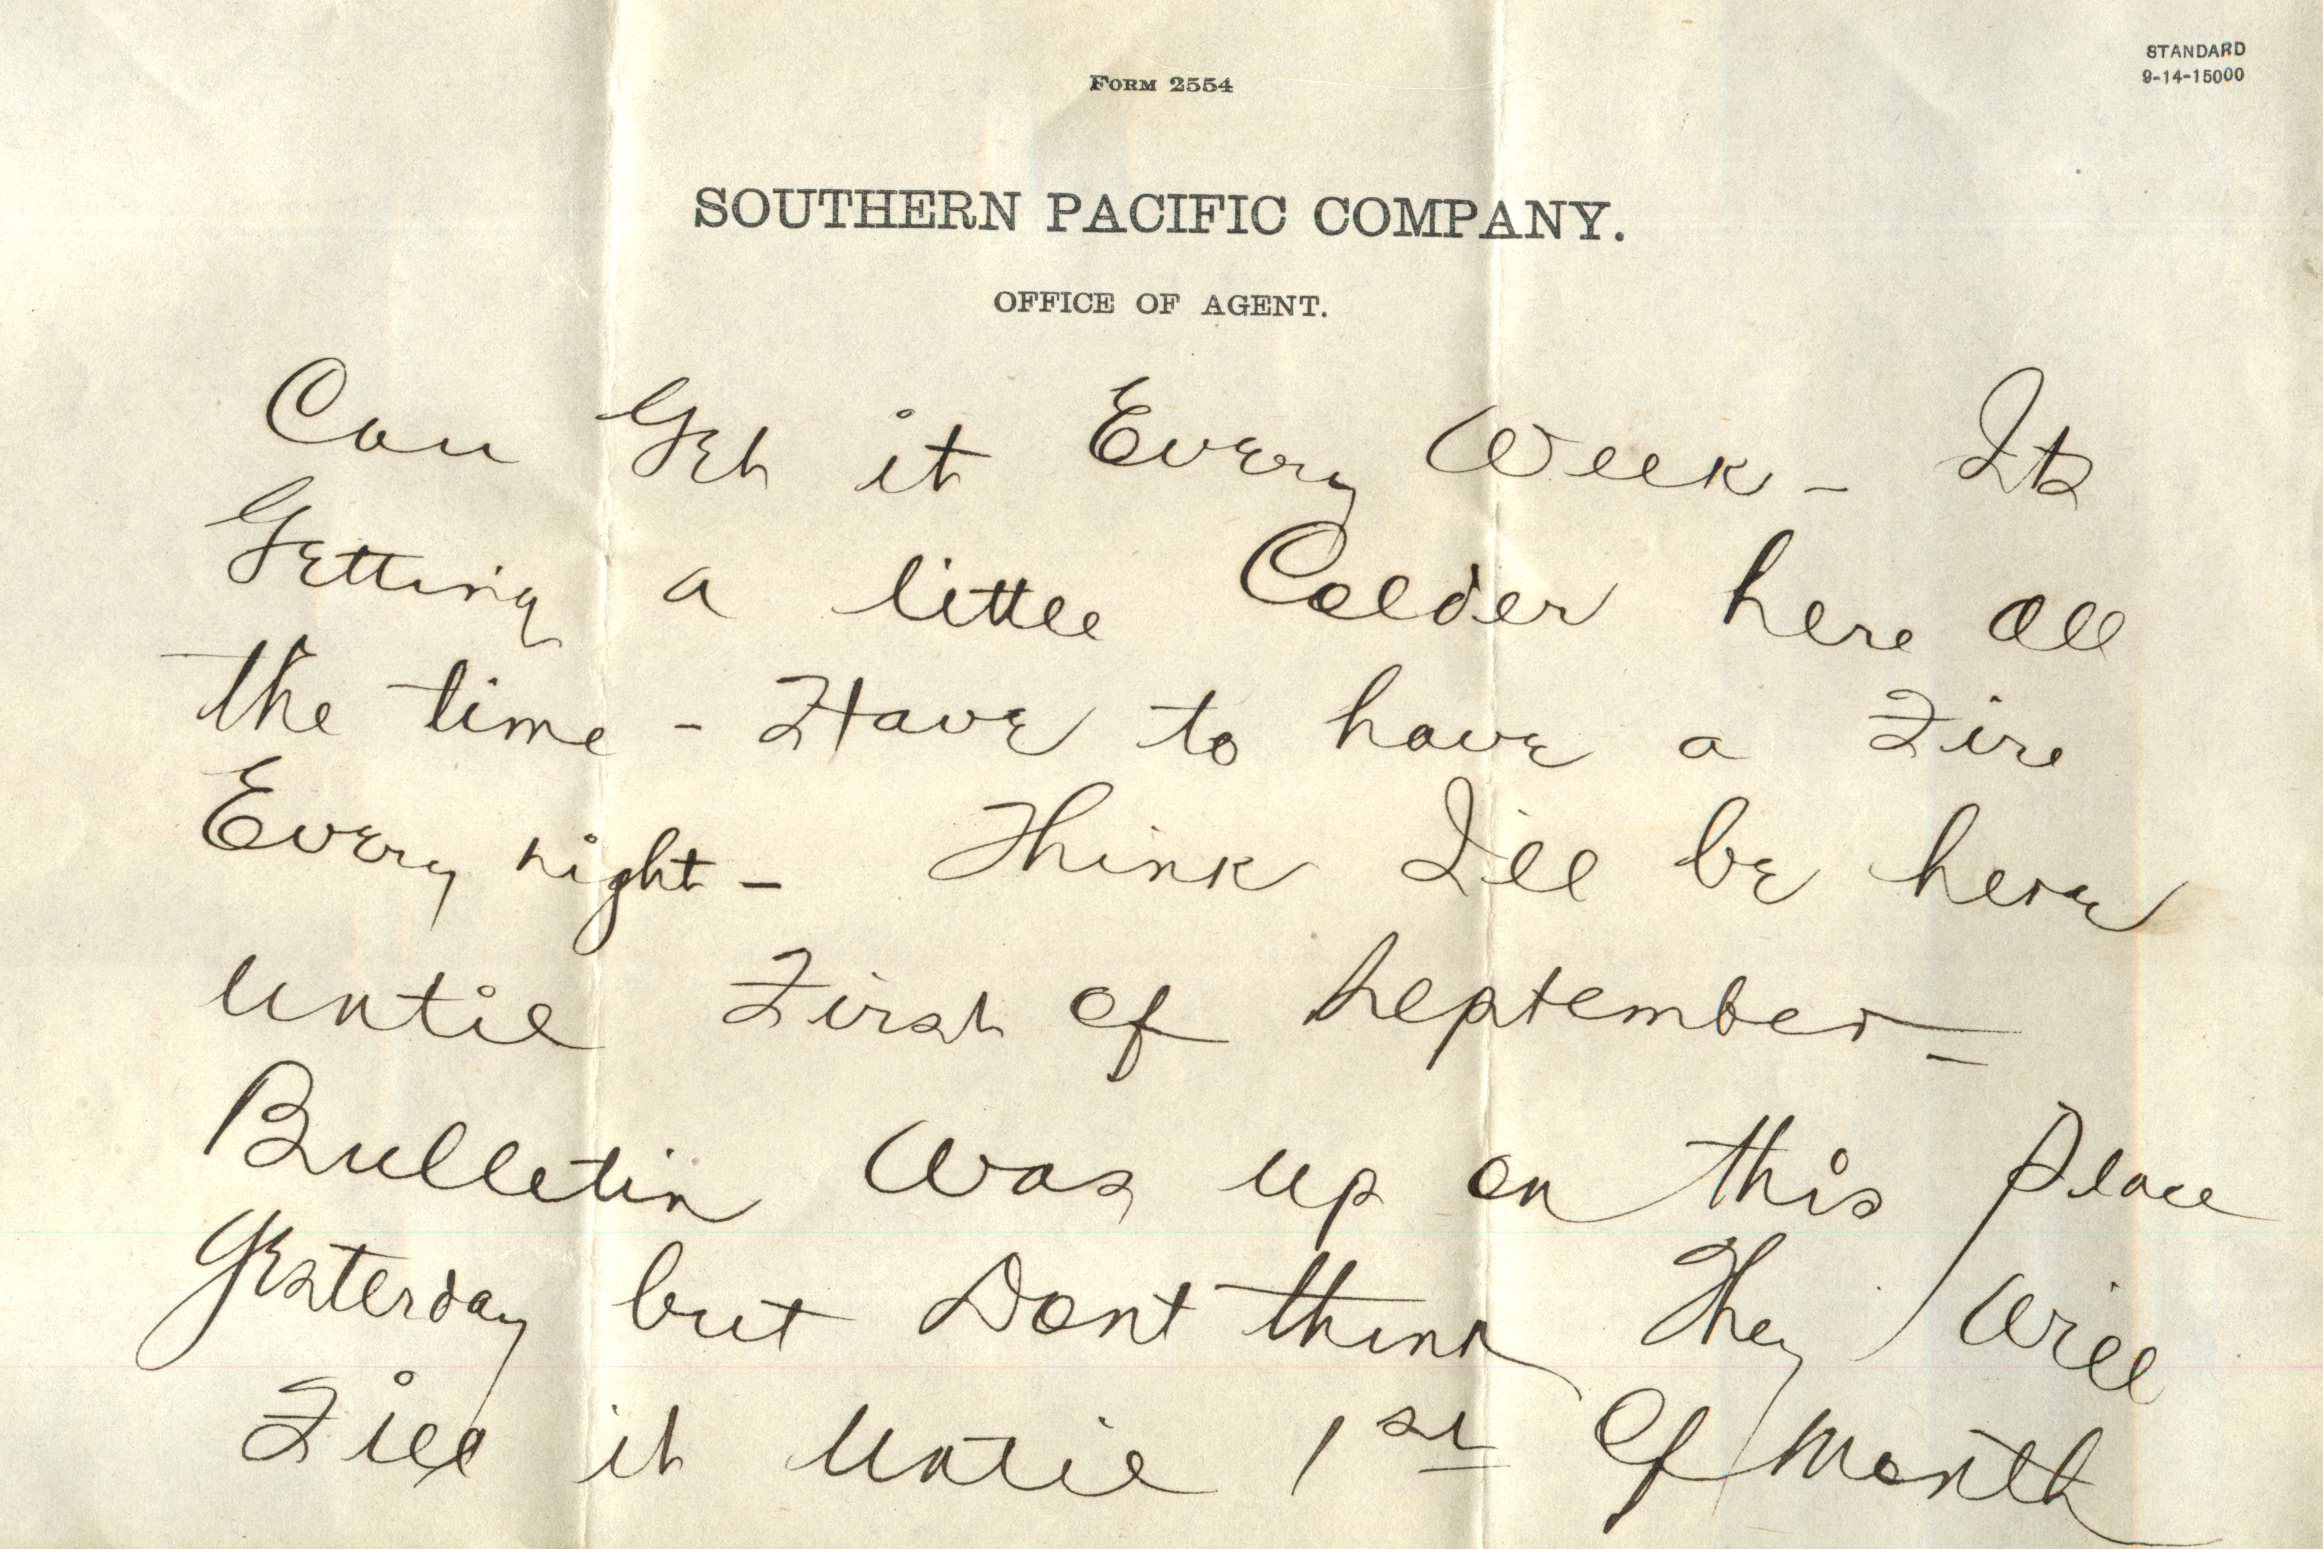 STANDARD
9-14-15000
FORM 2554
SOUTHERN PACIFIC COMPANY.
OFFICE OF AGENT.
Can Get it Every Week - Its
Getting a little Colder here all
the time - Have to have a Fire
Every night - Think I'll be here
until First of September -
Bulletin Was up on this Place
Yesterday but Dont think They Will
Fill it Until 1st Of Month